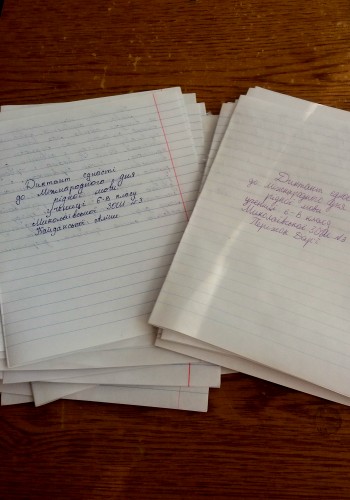 Диктант єдності
до Міжнародного дня
рідної мови
учениці 6-В класу
Миколаївської ЗОШ №3
Кайданської
Диктант
до Міжнародного дня
рідної мови
6-В класу
Миколаївської ЗОШ №3